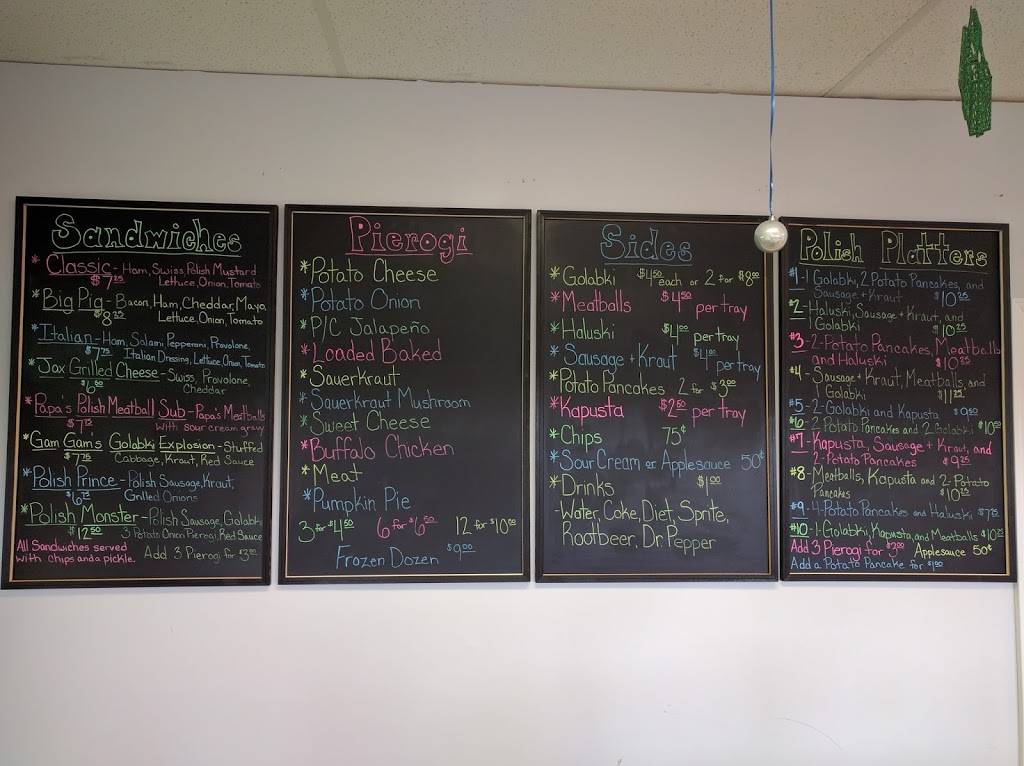 Sandwiches
* Classic - Ham, Swiss, Polish Mustard
$7.25 Lettuce, Onion, Tomato
* Big Pig - Bacon, Ham, Cheddar, Mayo,
$8.25 Lettuce, Onion, Tomato
* Italian - Ham, Salami Pepperoni, Provolone,
$7.75 Italian Dressing, Lettuce, Onion, Tomato
* Jax Grilled Cheese - Swiss, Provolone,
$6.00 Cheddar
* Papa's Polish Meatball Sub - Papa's Meatballs
$7.75 with sour cream gravy
* Gam Gam's Golabki Explosion - Stuffed
$7.75 Cabbage, Kraut, Red Sauce
* Polish Prince - Polish Sausage, Kraut,
$6.75 Grilled Onions
* Polish Monster - Polish Sausage, Golabki
$12.50 3 Potato Onion Pierogi, Red Sauce
All Sandwiches served
with chips and a pickle.
Add 3 Pierogi for $3.00
Pierogi
* Potato Cheese
* Potato Onion
* P/C Jalapeño
* Loaded Baked
* Sauerkraut
* Sauerkraut Mushroom
* Sweet Cheese
* Buffalo Chicken
* Meat
* Pumpkin Pie
3 for $4.50 6 for $6.50 12 for $10.00
Frozen Dozen $9.00
Sides
* Golabki $4.50 each or 2 for $8.00
* Meatballs $4.50 per tray
* Haluski $4.00 per tray
* Sausage + Kraut $4.00 per tray
* Potato Pancakes 2 for $3.00
* Kapusta $2.50 per tray
* Chips 75¢
* Sour Cream or Applesauce 50¢
* Drinks $1.00
- Water, Coke, Diet, Sprite,
Rootbeer, Dr. Pepper
Polish Platters
#1 - 1 Golabki, 2 Potato Pancakes, and
Sausage + Kraut $10.25
2 - Haluski, Sausage + Kraut, and
1 Golabki $10.25
#3 - 2-Potato Pancakes, Meatballs
and Haluski $10.25
#4 - Sausage + Kraut, Meatballs, and
Golabki $11.25
#5 - 2-Golabki and Kapusta $9.50
#6 - 2 Potato Pancakes and 2 Golabki $10.00
#7 - Kapusta, Sausage + Kraut, and
2-Potato Pancakes $9.25
#8 - Meatballs, Kapusta and 2-Potato
Pancakes $10.25
#9 - 4-Potato Pancakes and Haluski $7.75
#10 - 1-Golabki, Kapusta, and Meatballs $10.25
Add 3 Pierogi for $3.00 Applesauce 50¢
Add a Potato Pancake for $1.00